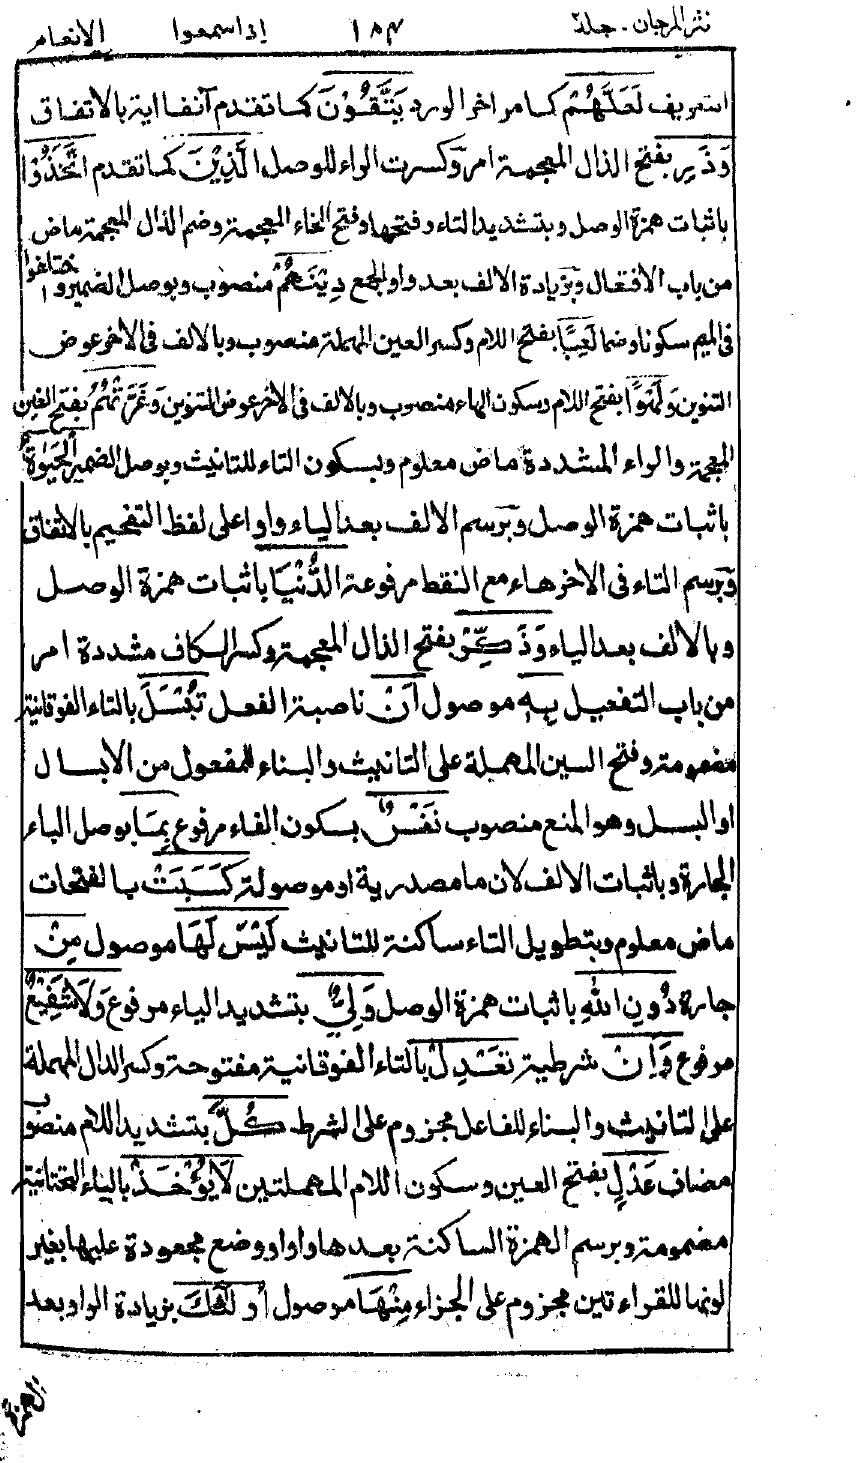 نثر المرجان - جلد٢ ١٨٣ إذا سمعوا الانعام
التعريف لَعَلَّهُمْ كما مر اخر الورد يَتَّقُوْنَ كما تقدم آنفا اية بالاتفاق
وَذَرِ بفتح الذال المعجمة امر وكسرت الراء للوصل الَّذِيْنَ كما تقدم اتَّخَذُوْا
باثبات همزة الوصل وبتشديد التاء وفتحها وفتح الخاء المعجمة وضم الذال المعجمة ماض
من باب الافتعال وبزيادة الالف بعد واو الجمع دِيْنَهُمْ منصوب وبوصل الضمير واختلفوا
فى الميم سكونا وضما لَعِبًا بفتح اللام وكسر العين المهملة منصوب وبالالف فى الاخر عوض
التنوين وَلَهْوًا بفتح اللام وسكون الهاء منصوب وبالالف فى الاخر عوض التنوين وَغَرَّتْهُمُ بفتح الغين
المعجمة والراء المشددة ماض معلوم وبسكون التاء للتانيث وبوصل الضمير الْحَيٰوةُ
باثبات همزة الوصل وبرسم الالف بعد الياء واوا على لفظ التفخيم بالاتفاق
وبرسم التاء فى الاخر هاء مع النقط مرفوعة الدُّنْيَا باثبات همزة الوصل
وبالالف بعد الياء وَذَكِّرْ بفتح الذال المعجمة وكسر الكاف مشددة امر
من باب التفعيل بِهٖ موصول اَنْ ناصبة الفعل تُبْسَلَ بالتاء الفوقانية
مضمومة وفتح السين المهملة على التانيث والبناء للمفعول من الابسال
او البسل وهو المنع منصوب نَفْسٌ بسكون الفاء مرفوع بِمَا بوصل الباء
الجارة وباثبات الالف لان ما مصدرية او موصولة كَسَبَتْ بالفتحات
ماض معلوم وبتطويل التاء ساكنة للتانيث لَيْسَ لَهَا موصول مِنْ
جارة دُوْنِ اللّٰهِ باثبات همزة الوصل وَلِيٌّ بتشديد الياء مرفوع وَلَا شَفِيْعٌ
مرفوع وَاِنْ شرطية تَعْدِلْ بالتاء الفوقانية مفتوحة وكسر الدال المهملة
على التانيث والبناء للفاعل مجزوم على الشرط كُلَّ بتشديد اللام منصوب
مضاف عَدْلٍ بفتح العين وسكون اللام المهملتين لَا يُؤْخَذْ بالياء التحتانية
مضمومة وبرسم الهمزة الساكنة بعدها واوا ووضع مجعودة عليها بغير
لونها للقراءتين مجزوم على الجزاء مِنْهَا موصول اُولٰٓئِكَ بزيادة الواو بعد
الهمزة